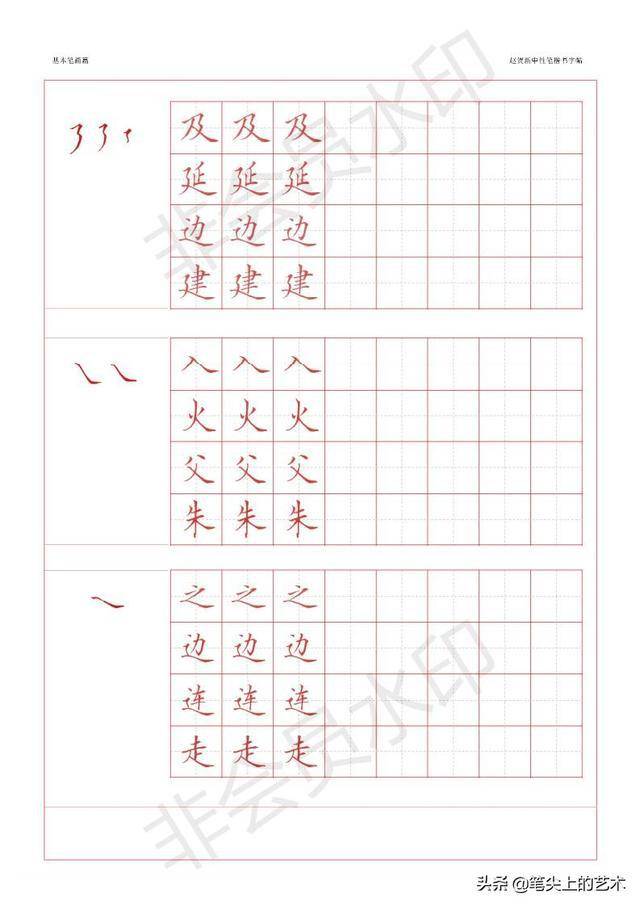 基本笔画篇
赵贺新中性笔楷书字帖
及及及
延延延
边边边
建建建
入入入
火火火
父父父
朱朱朱
之之之
边边边
连连连
走走走
非会员水印
非会员水印
头条 @笔尖上的艺术